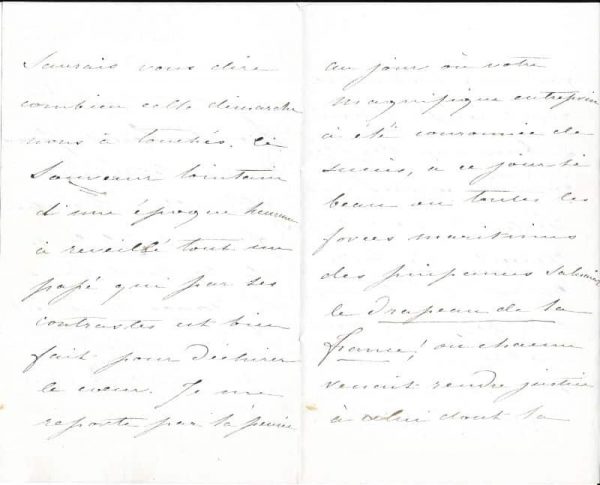 Saurais vous dire
combien cette démarche
nous à touchés. Ce
Souvenir lointain
d'une époque heureuse
à reveillé tout un
passé qui par ses
contrastes est bien
fait pour déchirer
le cœur. Je me
reporte par la pensée
au jour où votre
magnifique entreprise
à été couronnée de
succès, a ce jour si
beau ou toutes les
forces maritimes
des puissances saluaient
le drapeau de la
france! où chacun
venait rendre justice
à celui dont la